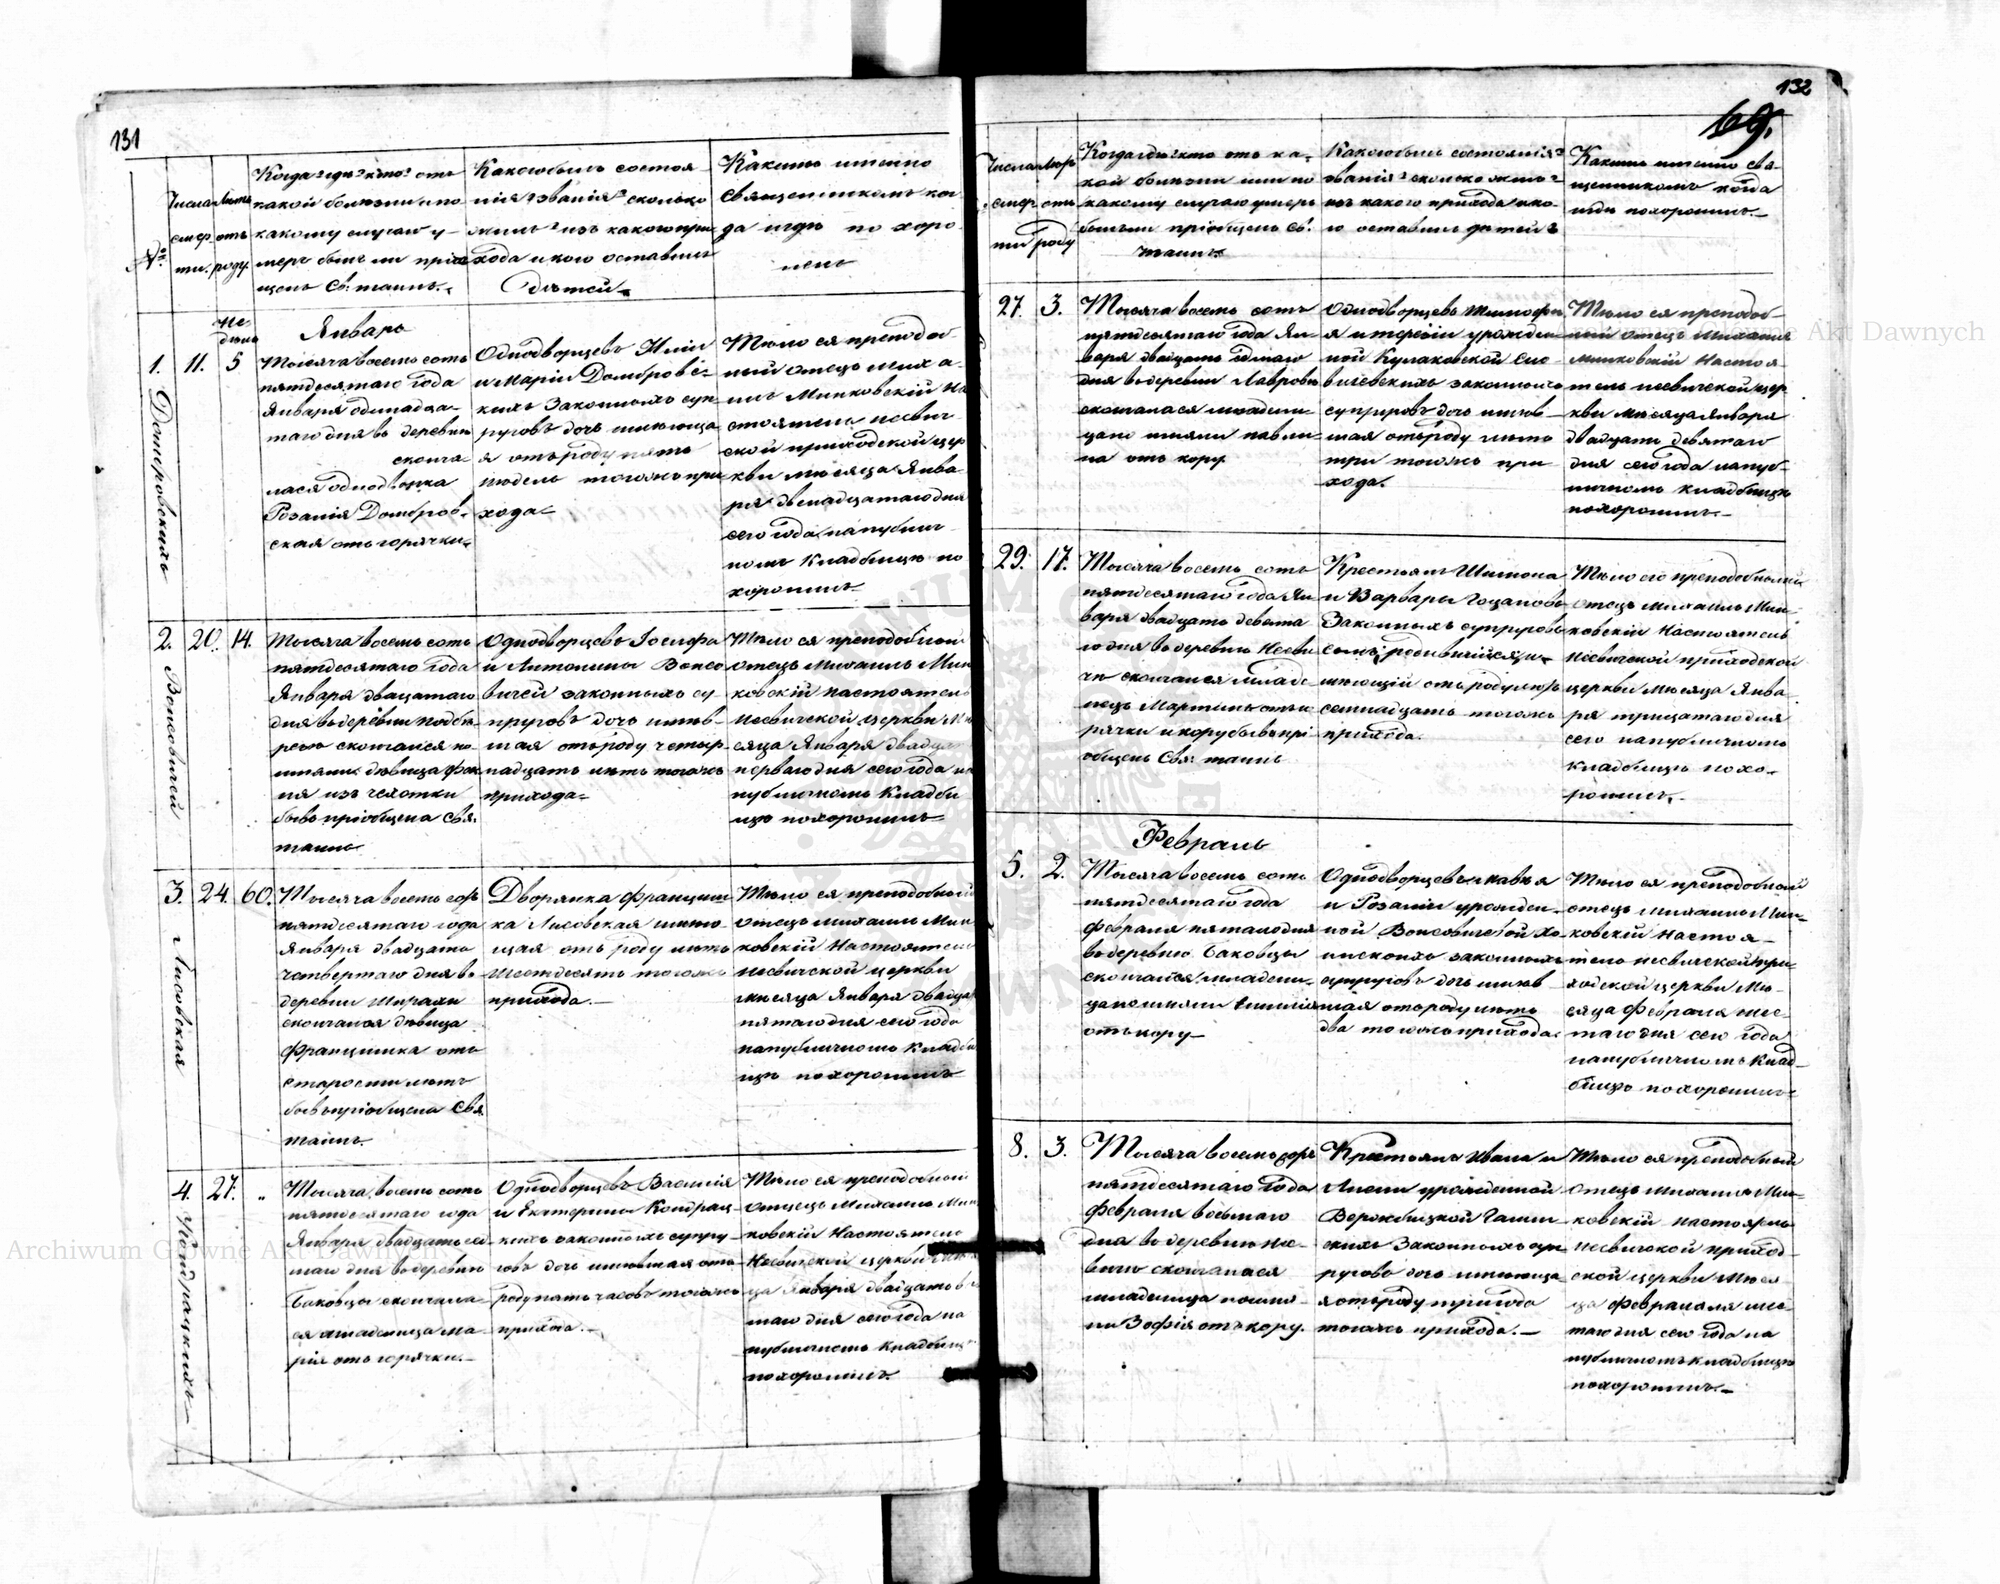 131
№
Числа
смер
ти.
Лета
отъ
роду
Когда? где? кто? отъ
какой болезни и по
какому случаю у-
меръ былъ ли прiоб
щенъ Св: таинъ.
Какого былъ состоя-
нiя? званiя? сколько
жилъ? изъ какого при
хода и кого оставилъ
Детей
Какимъ именно
Священникомъ ког
да и где по хоро
ненъ
Январь
1.
11.
не
дель
5
Домбровскихъ
Тысяча восемь сотъ
пятдесятаго года
Января одинадца-
таго дня въ деревни
сконча
лася однодворка
Розалiя Домбров-
ская отъ горячки
Однодворцевъ Илiи
и Марiи Домбровс-
кихъ Законныхъ суп
руговъ дочь имеюща
я отъ роду пять
недель тогожъ при
хода
Тело ея преподоб
ный отецъ Миха-
илъ Минковскiй На
стоятель Несвич
ской приходской цер
кви месяца Янва-
ря двенадцатаго дня
сего года на публич
номъ Кладбище по
хоронилъ
2.
20.
14.
Вонсовичей
Тысяча восемь сотъ
пятдесятаго года
Января двацатаго
дня въ деревни Подбе
скончался по
имени девица
изъ чахотки
бывъ прiобщена Свя.
таинъ
Однодворцевъ Iосифа
и Антонины Вонсо
вичей законныхъ су-
пруговъ дочь имев-
шая отъ роду четыр
надцать летъ тогожъ
прихода
Тело ея преподобный
отецъ Михаилъ Мин
ковскiй настоятель
Несвичской церкви Ме
сяца Января двадца
перваго дня сего года на
публичномъ Кладби
ще похоронилъ
3.
24.
60.
Лисовская
Тысяча восемь сотъ
пятдесятаго года
Января двадцать
четвертаго дня въ
деревни
скончалася девица
Францишка отъ
старости летъ
бывъ прiобщена Свя.
таинъ.
Дворянка Францишк
ка Лисовская имею-
щая отъ роду летъ
Шестдесятъ тогожъ
прихода.
Тело ея преподобный
отецъ Михаилъ Мин
ковскiй Настоятель
Несвичской церкви
месяца Января двадца
пятаго дня сего года
на публичномъ Кладби
ще похоронилъ
4.
27.
"
Кондрацкихъ
Тысяча восемь сотъ
пятдесятаго года
Января двадцать сед
маго дня въ деревни
Баковцы скончала-
ся младеница Ма-
рiя отъ горячки.
Однодворцевъ Василiя
и Екатерины Кондрац-
кихъ законныхъ супру-
говъ дочь имевшая отъ
роду пять часовъ тогожъ
прихода.
Тело ея преподобный
отецъ Михаилъ Мин
ковскiй Настоятель
Несвичской церкви Ме
ца Января двадцать
таго дня сего года на
публичномъ Кладбище
похоронилъ
132
69.
Числа
смер
ти
Лета
отъ
роду
Когда? где? кто отъ ка-
кой болезни или по
какому случаю умеръ
былъ ли прiобщенъ Св:
таинъ.
Какого былъ состоянiя?
званiя? сколько жилъ?
изъ какого прихода и ко-
го оставилъ детей?
Какимъ именно свя-
щенникомъ когда
и где похоронилъ.
27.
3.
Тысяча восемь сотъ
пятдесятаго года Ян
варя двадцать седмаго
дня въ деревни Лавровы
скончалася младени-
ца по имени Павли-
на отъ кору
Однодворцевъ Тимофе
я и Терезiи урожден
ной Кулаковской
законныхъ
супруговъ дочь имев-
шая отъ роду летъ
три тогожъ при
хода.
Тело ея преподоб-
ный отецъ Михаилъ
Минковскiй Настоя-
тель Несвичской цер
кви месяца Января
двадцать девятаго
дня сего года на пуб-
личномъ кладбище
похоронилъ.
29.
17.
Тысяча восемь сотъ
пятдесятаго года Ян
варя двадцать девята
го дня въ деревни Несви
чи скончался младе-
нецъ Мартинъ отъ го
рячки и кору бывъ прi
общенъ Свя: таинъ
Крестьянъ Шимона
и Варвары
Законныхъ супруговъ
сынъ
имеющiй отъ роду летъ
семнадцать тогожъ
прихода.
Тело его преподобный
отецъ Михаилъ Мин-
ковскiй Настоятель
Несвичской приходской
церкви месяца Янва-
ря трицатаго дня
сего на публичномъ
кладбище похо-
ронилъ.
Февраль
5.
2.
Тысяча восемь сотъ
пятдесятаго года
февраля пятаго дня
въ деревни Баковцы
скончался младени-
ца по имени
отъ кору
Однодворцевъ Павла
и Розалiи урожден-
ной Вонсовичевой
законныхъ
супруговъ дочь имев
шая отъ роду летъ
два тогожъ прихода.
Тело ея преподобный
отецъ Михаилъ Мин-
ковскiй Настоя-
тель Несвичской при-
ходской церкви Ме-
сяца Февраля шес-
таго дня сего года
на публичномъ Клад-
бище похоронилъ
8.
3.
Тысяча восемь сотъ
пятдесятаго года
февраля восьмаго
дня въ деревни Не-
вичи скончалася
младеница по име-
ни Зофiя отъ кору.
Крестьянъ Ивана и
урожденной
Законныхъ суп
руговъ дочь имеюща
я отъ роду три года
тогожъ прихода.
Тело ея преподобный
отецъ Михаилъ Мин-
ковскiй настоятель
Несвичской приход-
ской церкви Меся
ца Февраля
таго дня сего года на
публичномъ кладбище
похоронилъ.
Archiwum Główne Akt Dawnych
Archiwum Główne Akt Dawnych